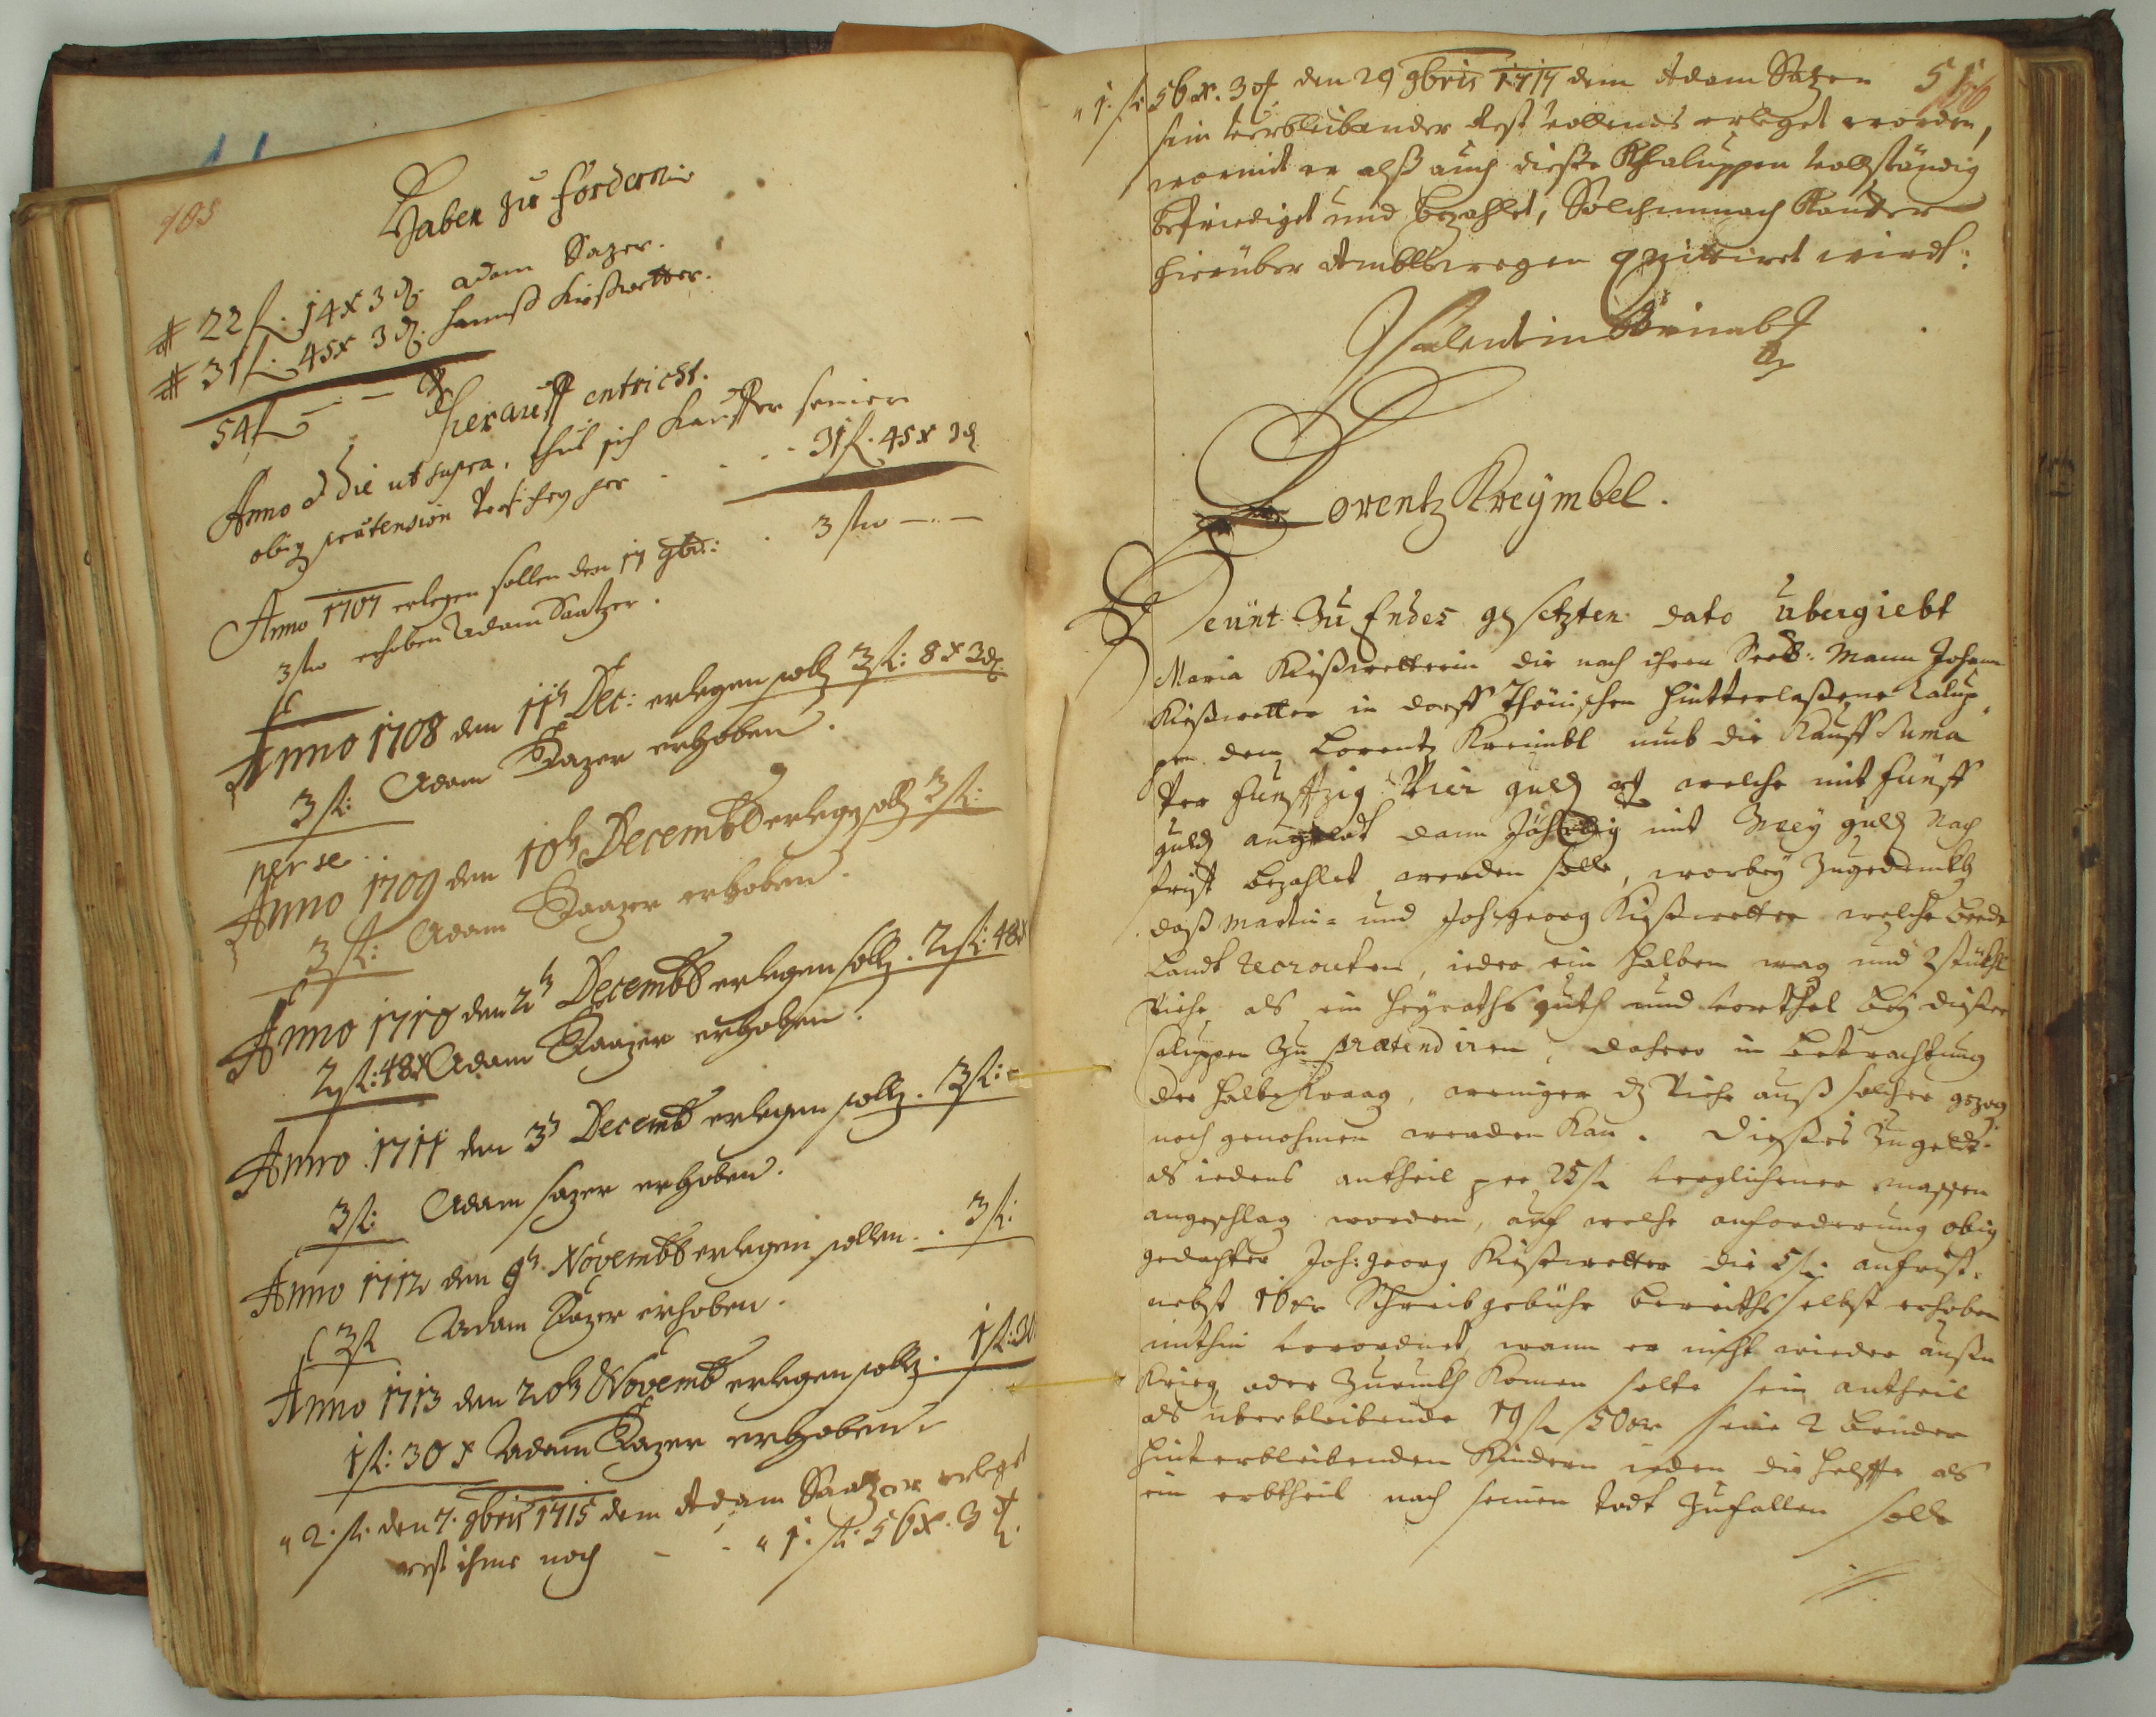 105
Haben zu fordern
# 22 fl: 14 x 3 d. Adam Sazer.
# 31 fl: 45 x 3 d. Hannß Kießwetter.
54 fl — · —
Hierauff entricht.
Anno & die ut supra, thut sich Kauffer seiner
obig praetension per 31 fl. 45 x 3 d
Anno 1707 erlegen sollen den 17 9br: . 3 fl — · —
3 fl erhoben Adam Saatzer.
Anno 1708 den 11t Dec: erlegen solln 3 fl: 8 x 3 d.
3 fl: Adam Sazer erhoben.
per se
Anno 1709 den 10t Decemb erlegn solln 3 fl:
3 fl: Adam Saazer erhoben.
Anno 1710 den 2t Decemb erlegen solln . 2 fl: 48 x
2 fl: 48 x Adam Saazer erhoben.
Anno 1711 den 3t Decemb erlegen solln . 3 fl:
3 fl: Adam Sazer erhoben.
Anno 1712 den 9t Novemb erlegen sollen . . 3 fl:
3 fl Adam Sazer erhoben.
Anno 1713 den 20t Novemb erlegen solln . 1 fl: 30
1 fl: 30 x Adam Sazer erhoben
" 2. fl: den 7. 9bris 1715 dem Adam Saatzer erlegt
rest ihme noch - - " 1. fl: 56 x. 3 d.
" 1. fl: 56 x. 3 d den 29 9bris 1717 dem Adam Satzer
sein verbleibender Rest vollends erleget worden,
womit er alß auch dieße Chaluppen vollständig
befriediget und bezahlet, Solchemnach Kauffer
hierüber Ambtswegen quitiret wirdt:
Valentin
Lorentz Kreÿmbel.
Heünt zu Endes gesetzten dato übergiebt
Maria Kießwetterin die nach ihren Seel: Mann Johann
Kießwetter in dorff Thönischen hintterlaßene Calup
pen dem Lorentz Kreimbl umb die Kauff Suma
Per Funffzig Vier guld welche mit Fünff
guld angeldt dann Jährlig mit Zwey guld Nach
frist bezahlet werden solle, worbey zugedenckh
daß Martin- und Joh: georg Kießwetter welche beede
Landt Recrouten, ieder ein halben wag und 2 stückh
Viehe als ein heyrathsguth und vortheil bey dießer
Caluppen zu praetendiren, dahero in betrachtung
der halbe Waag, weniger d Viehe auß solcher gezog
noch genohmen werden kan. Dießes zu geldt
als iedens antheil per 25 fl verglichener massen
angeschlag worden, auf welche anforderung obig
gedachter Joh: georg Kießwetter die 5 fl: anfrist-
nebst 10 xr Schreibgebühr bereiths selbst erhoben
mithin verordnet, wann er nicht wieder außn
Krieg oder Zuruckh Komen solte sein antheil
als überbleibende 19 fl 50 xr seine 2 brüder
hinterbleibenden Kindern ieden die helffte als
ein erbtheil nach seinen todt zufallen solle